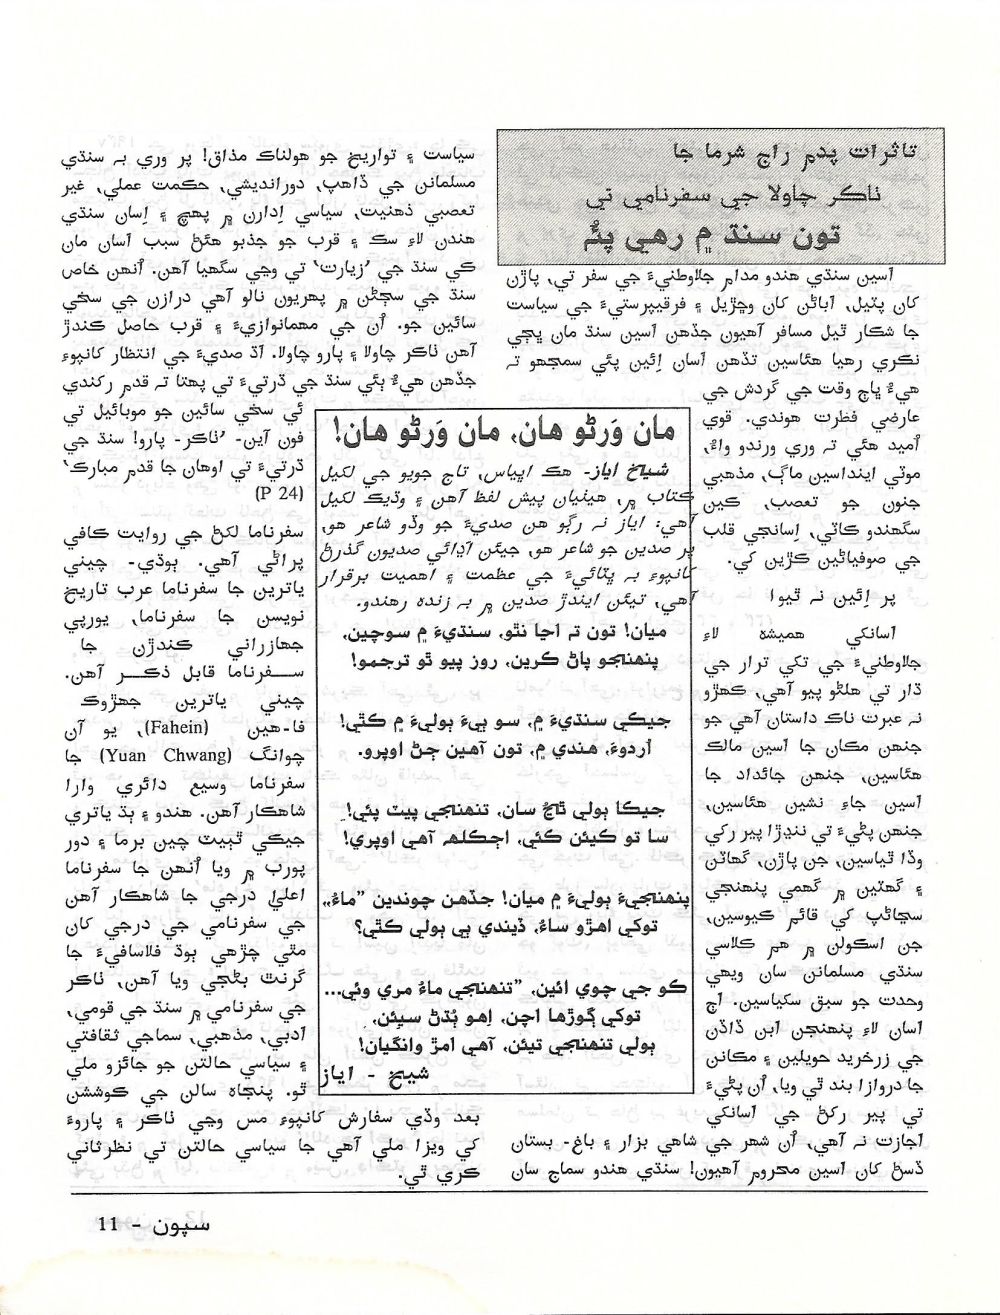 تاثرات پدم راج شرما جا
ٺاڪر چاولا جي سفرنامي تي
تون سنڌ ۾ رهي پئہ
اسين سنڌي هندو مدام جلاوطنيءَ جي سفر تي، پاڙن
کان پٽيل، اباڻن کان وڇڙيل ۽ فرقيپرستيءَ جي سياست
جا شڪار ٿيل مسافر آهيون جڏهن اسين سنڌ مان ڀڄي
نڪري رهيا هئاسين تڏهن اسان اِئين پئي سمجهو تہ
هيءُ ڀاڄ وقت جي گردش جي
عارضي فطرت هوندي. قوي
اُميد هئي تہ وري ورندو واءُ،
موٽي اينداسين ماڳ، مذهبي
جنون جو تعصب، ڪين
سگهندو ڪاٽي، اِسانجي قلب
جي صوفياڻين ڪڙين کي.
پر اِئين نہ ٿيو!
اسانکي هميشہ لاءِ
جلاوطنيءَ جي تکي ترار جي
ڌار تي هلڻو پيو آهي، ڪهڙو
نہ عبرت ناڪ داستان آهي جو
جنهن مڪان جا اسين مالڪ
هئاسين، جنهن جائداد جا
اسين جاءِ نشين هئاسين،
جنهن پٽيءَ تي ننڍڙا پير رکي
وڏا ٿياسين، جن پاڙن، گهاٽن
۽ گهٽين ۾ گهمي پنهنجي
سڃاڻپ کي قائم ڪيوسين،
جن اسڪولن ۾ هم ڪلاسي
سنڌي مسلمانن سان ويهي
وحدت جو سبق سکياسين. اڄ
اسان لاءِ پنهنجن ابن ڏاڏن
جي زرخريد حويلين ۽ مڪانن
جا دروازا بند ٿي ويا، اُن پٽيءَ
تي پير رکڻ جي اسانکي
اجازت نہ آهي، اُن شهر جي شاهي بزار ۽ باغ- بستان
ڏسڻ کان اسين محروم آهيون! سنڌي هندو سماج سان
مان وَرڻو هان، مان وَرڻو هان!
شيخ اياز- هڪ اڀياس، تاج جويو جي لکيل
ڪتاب ۾، هيٺيان پيش لفظ آهن ۽ وڌيڪ لکيل
آهي: اياز نہ رڳو هن صديءَ جو وڏو شاعر هو،
پر صدين جو شاعر هو، جيئن اڍائي صديون گذرڻ
کانپوءِ بہ ڀٽائيءَ جي عظمت ۽ اهميت برقرار
آهي، تيئن ايندڙ صدين ۾ بہ زنده رهندو.
ميان! تون تہ اڃا نٿو، سنڌيءَ ۾ سوچين،
پنهنجو پاڻ ڪرين، روز پيو ٿو ترجمو!
جيڪي سنڌيءَ ۾، سو ٻيءَ ٻوليءَ ۾ ڪٿي!
اردوءَ، هنديءَ ۾، تون آهين ڄڻ اوپرو.
جيڪا ٻولي ٿڃ سان، تنهنجي پيٽ پئي!
سا تو ڪيئن ڪئي، اڄڪلهہ آهي اوپري!
پنهنجيءَ ٻوليءَ ۾ ميان! جڏهن چوندين ”ماءُ“
توکي اهڙو ساءُ، ڏيندي ٻي ٻولي ڪٿي؟
ڪو جي چوي ائين، ”تنهنجي ماءُ مري وئي...
توکي ڳوڙها اچن، اِهو ٻُڌڻ سيئن،
ٻولي تنهنجي تيئن، آهي امڙ وانگيان!
شيخ - اياز
سياست ۽ تواريخ جو هولناڪ مذاق! پر وري بہ سنڌي
مسلمانن جي ڏاهپ، دورانديشي، حڪمت عملي، غير
تعصبي ذهنيت، سياسي اِدارن ۾ پهچ ۽ اِسان سنڌي
هندن لاءِ سڪ ۽ قرب جو جذبو هئڻ سبب اسان مان
ڪي سنڌ جي ’زيارت‘ تي وڃي سگهيا آهن. اُنهن خاص
سنڌ جي سڄڻن ۾ پهريون نالو آهي درازن جي سخي
سائين جو. اُن جي مهمانوازيءَ ۽ قرب حاصل ڪندڙ
آهن ٺاڪر چاولا ۽ پارو چاولا. اڌ صديءَ جي انتظار کانپوءِ
جڏهن هيءُ ٻئي سنڌ جي ڌرتيءَ تي پهتا تہ قدم رکندي
ئي سخي سائين جو موبائيل تي
فون آين- ’ٺاڪر- پارو! سنڌ جي
ڌرتيءَ تي اوهان جا قدم مبارڪ‘
(P 24)
سفرناما لکڻ جي روايت ڪافي
پراڻي آهي. ٻوڌي- چيني
ياترين جا سفرناما عرب تاريخ
نويسن جا سفرناما، يورپي
جهازراني ڪندڙن جا
سفرناما قابل ذڪر آهن.
چيني ياترين جهڙوڪ
فا-هين (Fahein)، يو آن
چوانگ (Yuan Chwang) جا
سفرناما وسيع دائري وارا
شاهڪار آهن. هندو ۽ ٻڌ ياتري
جيڪي تٻيٽ چين برما ۽ دور
پورب ۾ ويا اُنهن جا سفرناما
اعليٰ درجي جا شاهڪار آهن
جي سفرنامي جي درجي کان
مٿي چڙهي ٻوڌ فلاسافيءَ جا
گرنٿ بڻجي ويا آهن، ٺاڪر
جي سفرنامي ۾ سنڌ جي قومي،
ادبي، مذهبي، سماجي ثقافتي
۽ سياسي حالتن جو جائزو ملي
ٿو. پنجاه سالن جي ڪوششن
بعد وڏي سفارش کانپوءِ مس وڃي ٺاڪر ۽ پاروءَ
کي ويزا ملي آهي جا سياسي حالتن تي نظرثاني
ڪري ٿي.
سپون - 11